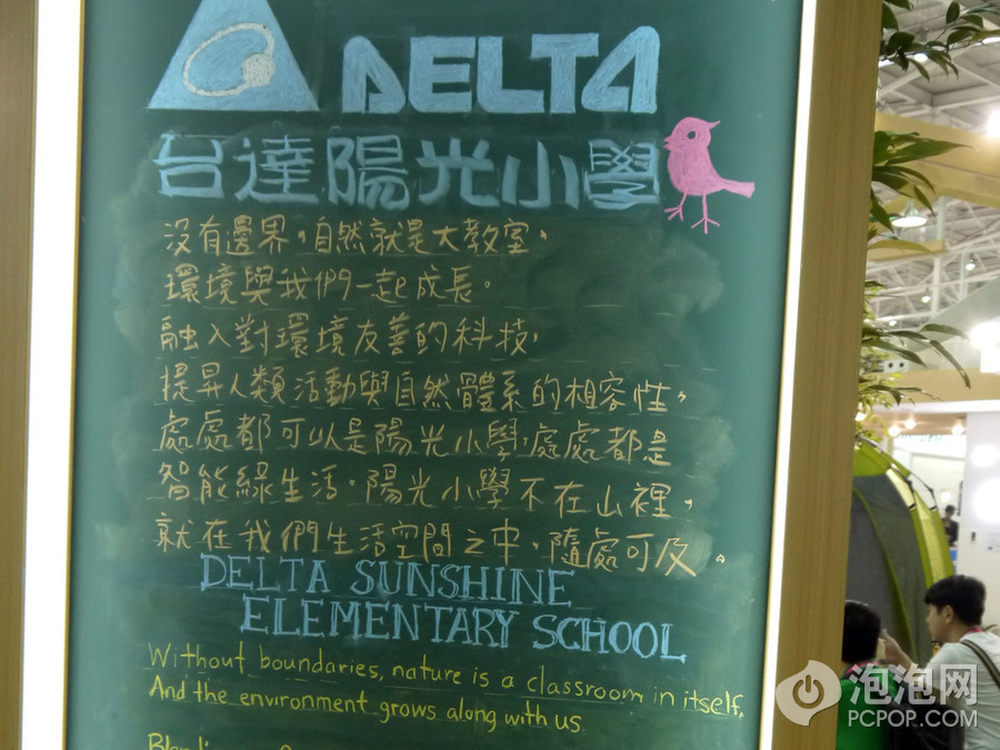 DELTA
台達陽光小學
沒有邊界，自然就是大教室，
環境與我們一起成長。
融入對環境友善的科技，
提昇人類活動與自然體系的相容性，
處處都可以是陽光小學，處處都是
智能綠生活，陽光小學不在山裡，
就在我們生活空間之中，隨處可及。
DELTA SUNSHINE
ELEMENTARY SCHOOL
Without boundaries, nature is a classroom in itself,
And the environment grows along with us
泡泡网
PCPOP.COM